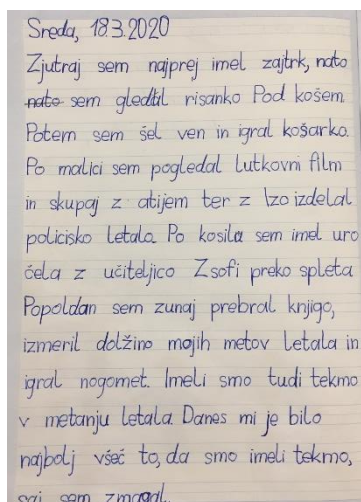 Sreda, 18.3.2020
Zjutraj sem najprej imel zajtrk, nato
nato sem gledal risanko Pod košem.
Potem sem šel ven in igral košarko.
Po malici sem pogledal lutkovni film
in skupaj z atijem ter z Izo izdelal
policisko letalo. Po kosilu sem imel uro
čela z učiteljico Zsofi preko spleta
Popoldan sem zunaj prebral knjigo,
izmeril dolžino mojih metov letala in
igral nogomet. Imeli smo tudi tekmo
v metanju letala. Danes mi je bilo
najbolj všeč to, da smo imeli tekmo,
saj sem zmagal.